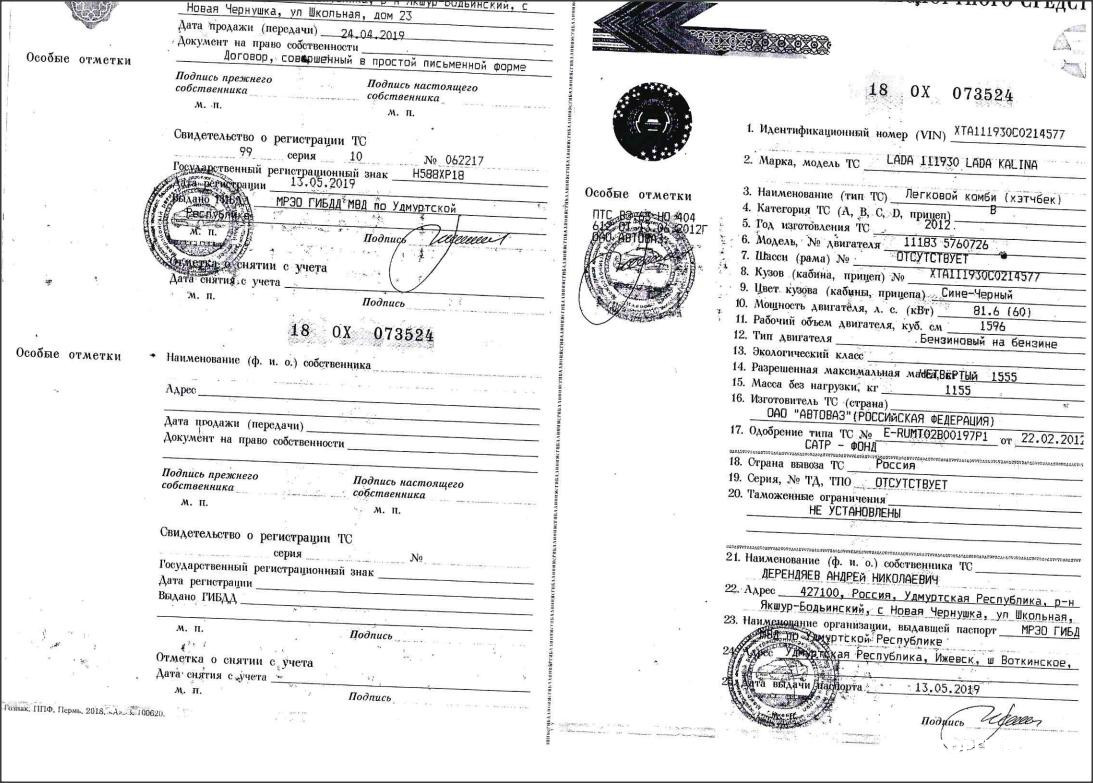 Новая Чернушка, ул Школьная, дом 23
Дата продажи (передачи) 24.04.2019
Документ на право собственности
Договор, совершенный в простой письменной форме
Особые отметки
Подпись прежнего собственника
Подпись настоящего собственника
м. п.
м. п.
Свидетельство о регистрации ТС
99 серия 10 № 062217
Государственный регистрационный знак Н588ХР18
Дата регистрации 13.05.2019
Выдано ГИБДД МРЭО ГИБДД МВД по Удмуртской
Республике
м. п.
Подпись
Отметка о снятии с учета
Дата снятия с учета
м. п.
Подпись
18 ОХ 073524
Особые отметки
Наименование (ф. и. о.) собственника
Адрес
Дата продажи (передачи)
Документ на право собственности
Подпись прежнего собственника
Подпись настоящего собственника
м. п.
м. п.
Свидетельство о регистрации ТС
серия №
Государственный регистрационный знак
Дата регистрации
Выдано ГИБДД
м. п.
Подпись
Отметка о снятии с учета
Дата снятия с учета
м. п.
Подпись
Гознак, ППФ, Пермь, 2018,
18 ОХ 073524
1. Идентификационный номер (VIN) XTA111930C0214577
2. Марка, модель ТС LADA 111930 LADA KALINA
Особые отметки
ПТС 63 НО 404
612 ОТ 13.06.2012Г
ОАО АВТОВАЗ
3. Наименование (тип ТС) Легковой комби (хэтчбек)
4. Категория ТС (А, В, С, D, прицеп) В
5. Год изготовления ТС 2012
6. Модель, № двигателя 11183 5760726
7. Шасси (рама) № ОТСУТСТВУЕТ
8. Кузов (кабина, прицеп) № XTA111930C0214577
9. Цвет кузова (кабины, прицепа) Сине-Черный
10. Мощность двигателя, л. с. (кВт) 81.6 (60)
11. Рабочий объем двигателя, куб. см 1596
12. Тип двигателя Бензиновый на бензине
13. Экологический класс
14. Разрешенная максимальная масса, кг ЧЕТВЕРТЫЙ 1555
15. Масса без нагрузки, кг 1155
16. Изготовитель ТС (страна)
ОАО "АВТОВАЗ"(РОССИЙСКАЯ ФЕДЕРАЦИЯ)
17. Одобрение типа ТС № E-RUMT02B00197P1 от 22.02.2012
САТР - ФОНД
18. Страна вывоза ТС Россия
19. Серия, № ТД, ТПО ОТСУТСТВУЕТ
20. Таможенные ограничения
НЕ УСТАНОВЛЕНЫ
21. Наименование (ф. и. о.) собственника ТС
ДЕРЕНДЯЕВ АНДРЕЙ НИКОЛАЕВИЧ
22. Адрес 427100, Россия, Удмуртская Республика, р-н
Якшур-Бодьинский, с Новая Чернушка, ул Школьная,
23. Наименование организации, выдавшей паспорт МРЭО ГИБД
МВД по Удмуртской Республике
24. Адрес Удмуртская Республика, Ижевск, ш Воткинское,
25. Дата выдачи паспорта 13.05.2019
Подпись